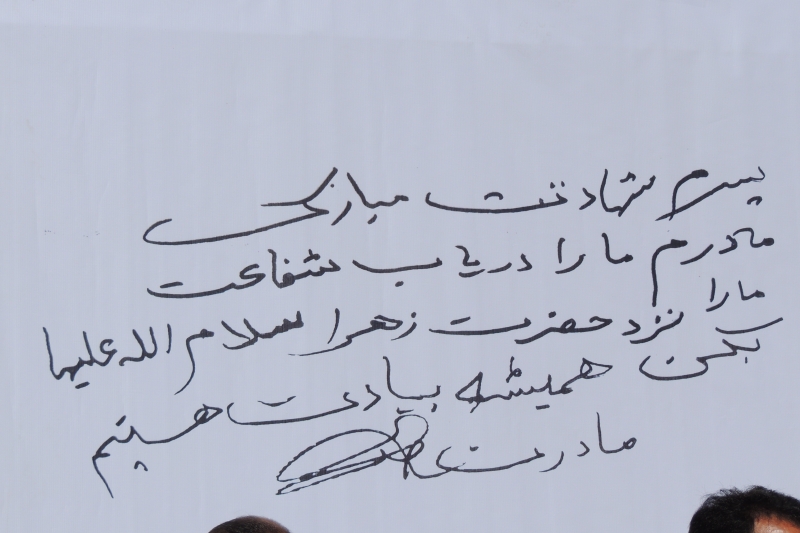 پسرم شهادتت مبارک
مادرم ما را دریاب شفاعت
ما را نزد حضرت زهرا سلام الله علیها
بکن همیشه بیادت هستیم
مادرت